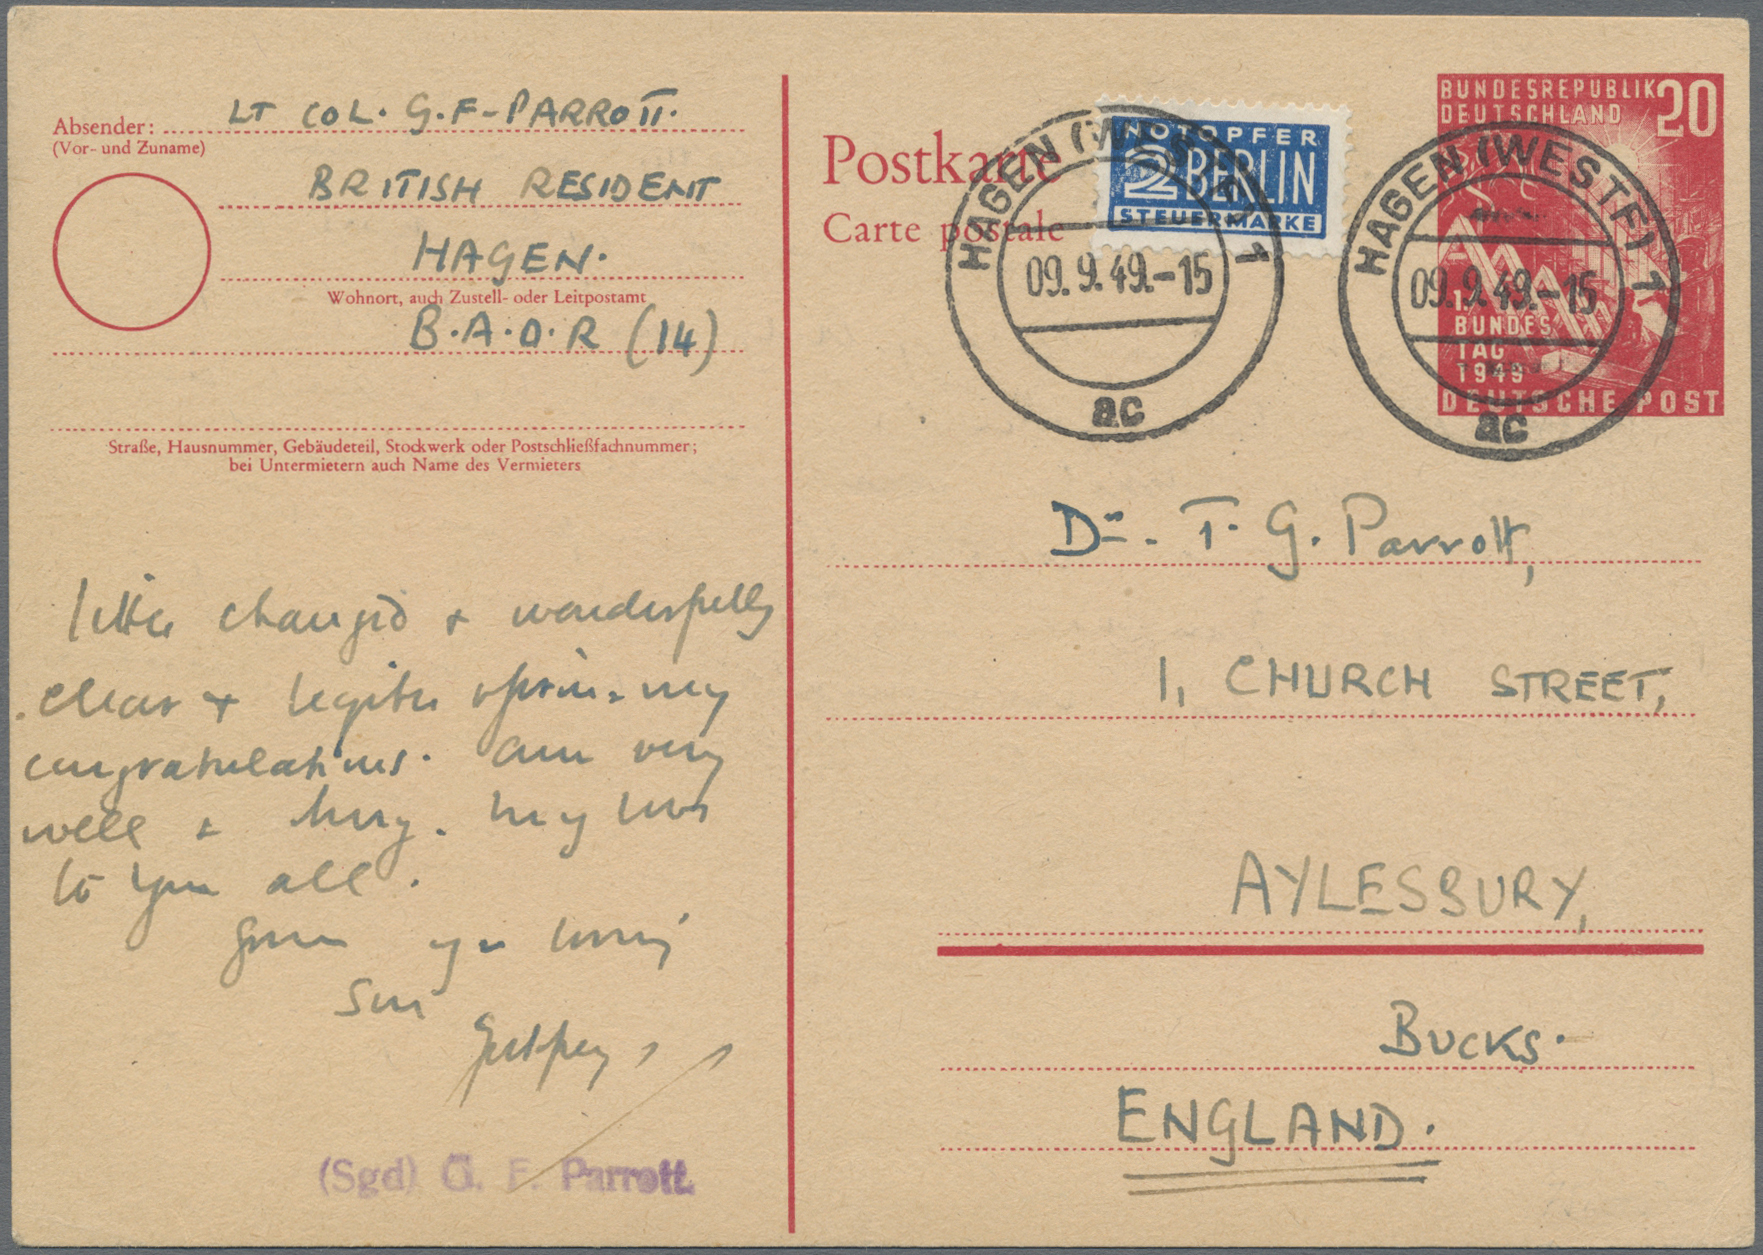 Absender: LT COL. G.F-PARROTT.
(Vor- und Zuname)
BRITISH RESIDENT
HAGEN.
Wohnort, auch Zustell- oder Leitpostamt
B.A.O.R (14)
Straße, Hausnummer, Gebäudeteil, Stockwerk oder Postschließfachnummer;
bei Untermietern auch Name des Vermieters
changed & wonderfully
clear & my
congratulations. Am very
well & busy. My love
to you all.
loving
Son
(Sgd) G. F. Parrott.
Postkarte
Carte postale
NOTOPFER
2 BERLIN
STEUERMARKE
HAGEN (WESTF) 1
09. 9. 49.-15
ac
HAGEN (WESTF) 1
09. 9. 49.-15
ac
BUNDESREPUBLIK 20
DEUTSCHLAND
1.
BUNDES
TAG
1949
DEUTSCHE POST
Dr. T. G. Parrott,
1, CHURCH STREET,
AYLESBURY,
BUCKS.
ENGLAND.